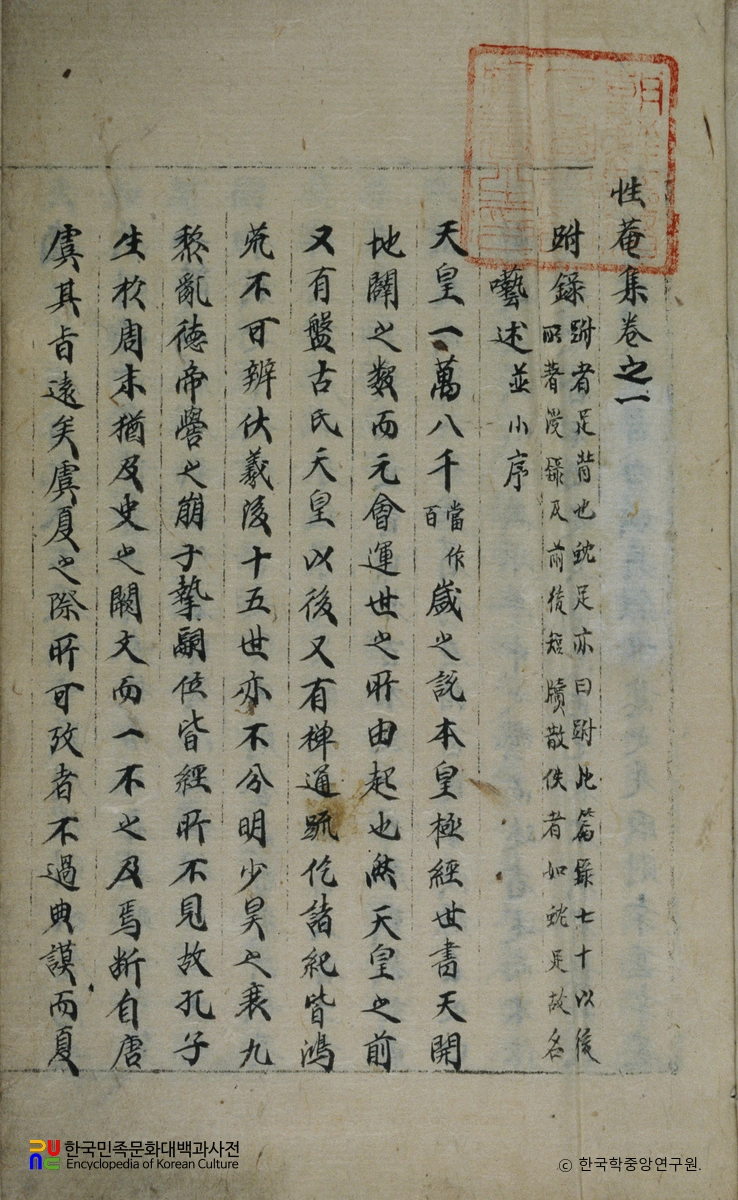 性菴集卷之一
跗錄 跗者足背也蛇足亦曰跗此篇錄七十以後
所著漫錄及前後短牘散佚者如蛇足故名
囈述並小序
天皇一萬八千當作百歲之說本皇極經世書天開
地闢之數而元會運世之所由起也然天皇之前
又有盤古氏天皇以後又有禪通疏仡諸紀皆鴻
荒不可辨伏羲後十五世亦不分明少昊之衰九
黎亂德帝嚳之崩子摯嗣位皆經所不見故孔子
生於周末猶及史之闕文而一不之及焉斷自唐
虞其旨遠矣虞夏之際所可攷者不過典謨而夏
한국민족문화대백과사전
Encyclopedia of Korean Culture
© 한국학중앙연구원.